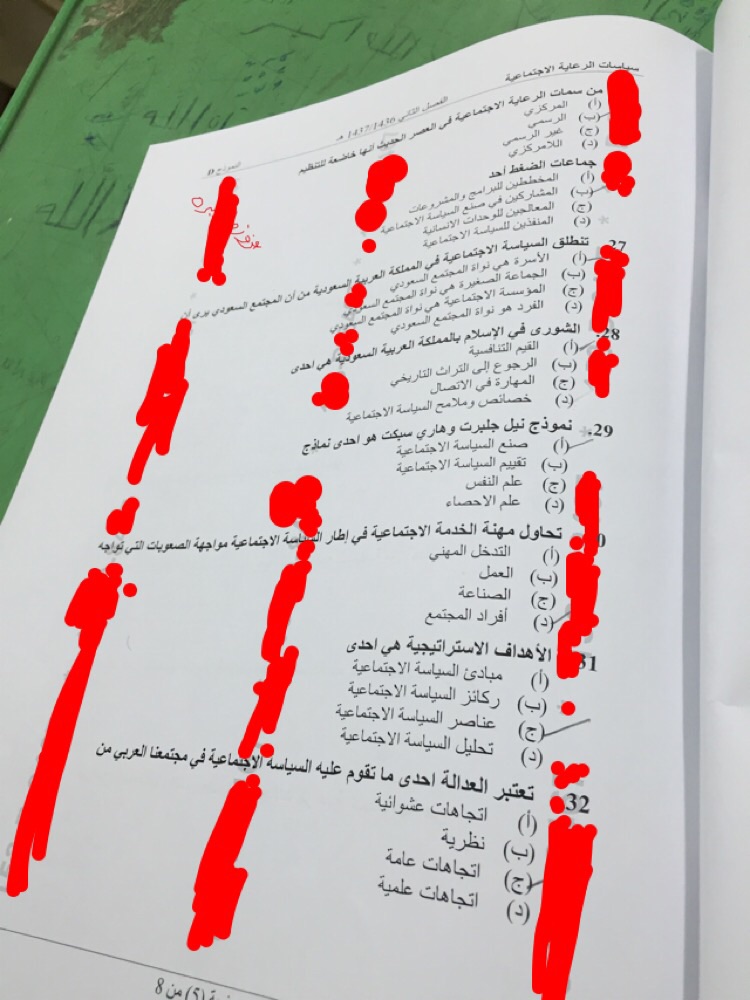 سياسات الرعاية الاجتماعية
الفصل الثاني 1437/1436 هـ
النموذج D
من سمات الرعاية الاجتماعية في العصر الحديث أنها خاضعة للتنظيم
(أ) المركزي
(ب) الرسمي
(ج) غير الرسمي
(د) اللامركزي
جماعات الضغط أحد
(أ) المخططين للبرامج والمشروعات
(ب) المشاركين في صنع السياسة الاجتماعية
(ج) المعالجين للوحدات الانسانية
(د) المنفذين للسياسة الاجتماعية
27 تنطلق السياسة الاجتماعية في المملكة العربية السعودية من أن المجتمع السعودي يرى أن
(أ) الأسرة هي نواة المجتمع السعودي
(ب) الجماعة الصغيرة هي نواة المجتمع السعودي
(ج) المؤسسة الاجتماعية هي نواة المجتمع السعودي
(د) الفرد هو نواة المجتمع السعودي
28. الشورى في الإسلام بالمملكة العربية السعودية هي احدى
(أ) القيم التنافسية
(ب) الرجوع إلى التراث التاريخي
(ج) المهارة في الاتصال
(د) خصائص وملامح السياسة الاجتماعية
29. نموذج نيل جلبرت وهاري سبكت هو احدى نماذج
(أ) صنع السياسة الاجتماعية
(ب) تقييم السياسة الاجتماعية
(ج) علم النفس
(د) علم الاحصاء
0 تحاول مهنة الخدمة الاجتماعية في إطار السياسة الاجتماعية مواجهة الصعوبات التي تواجه
(أ) التدخل المهني
(ب) العمل
(ج) الصناعة
(د) أفراد المجتمع
31 الأهداف الاستراتيجية هي احدى
(أ) مبادئ السياسة الاجتماعية
(ب) ركائز السياسة الاجتماعية
(ج) عناصر السياسة الاجتماعية
(د) تحليل السياسة الاجتماعية
32 تعتبر العدالة احدى ما تقوم عليه السياسة الاجتماعية في مجتمعنا العربي من
(أ) اتجاهات عشوائية
(ب) نظرية
(ج) اتجاهات عامة
(د) اتجاهات علمية
(5) من 8